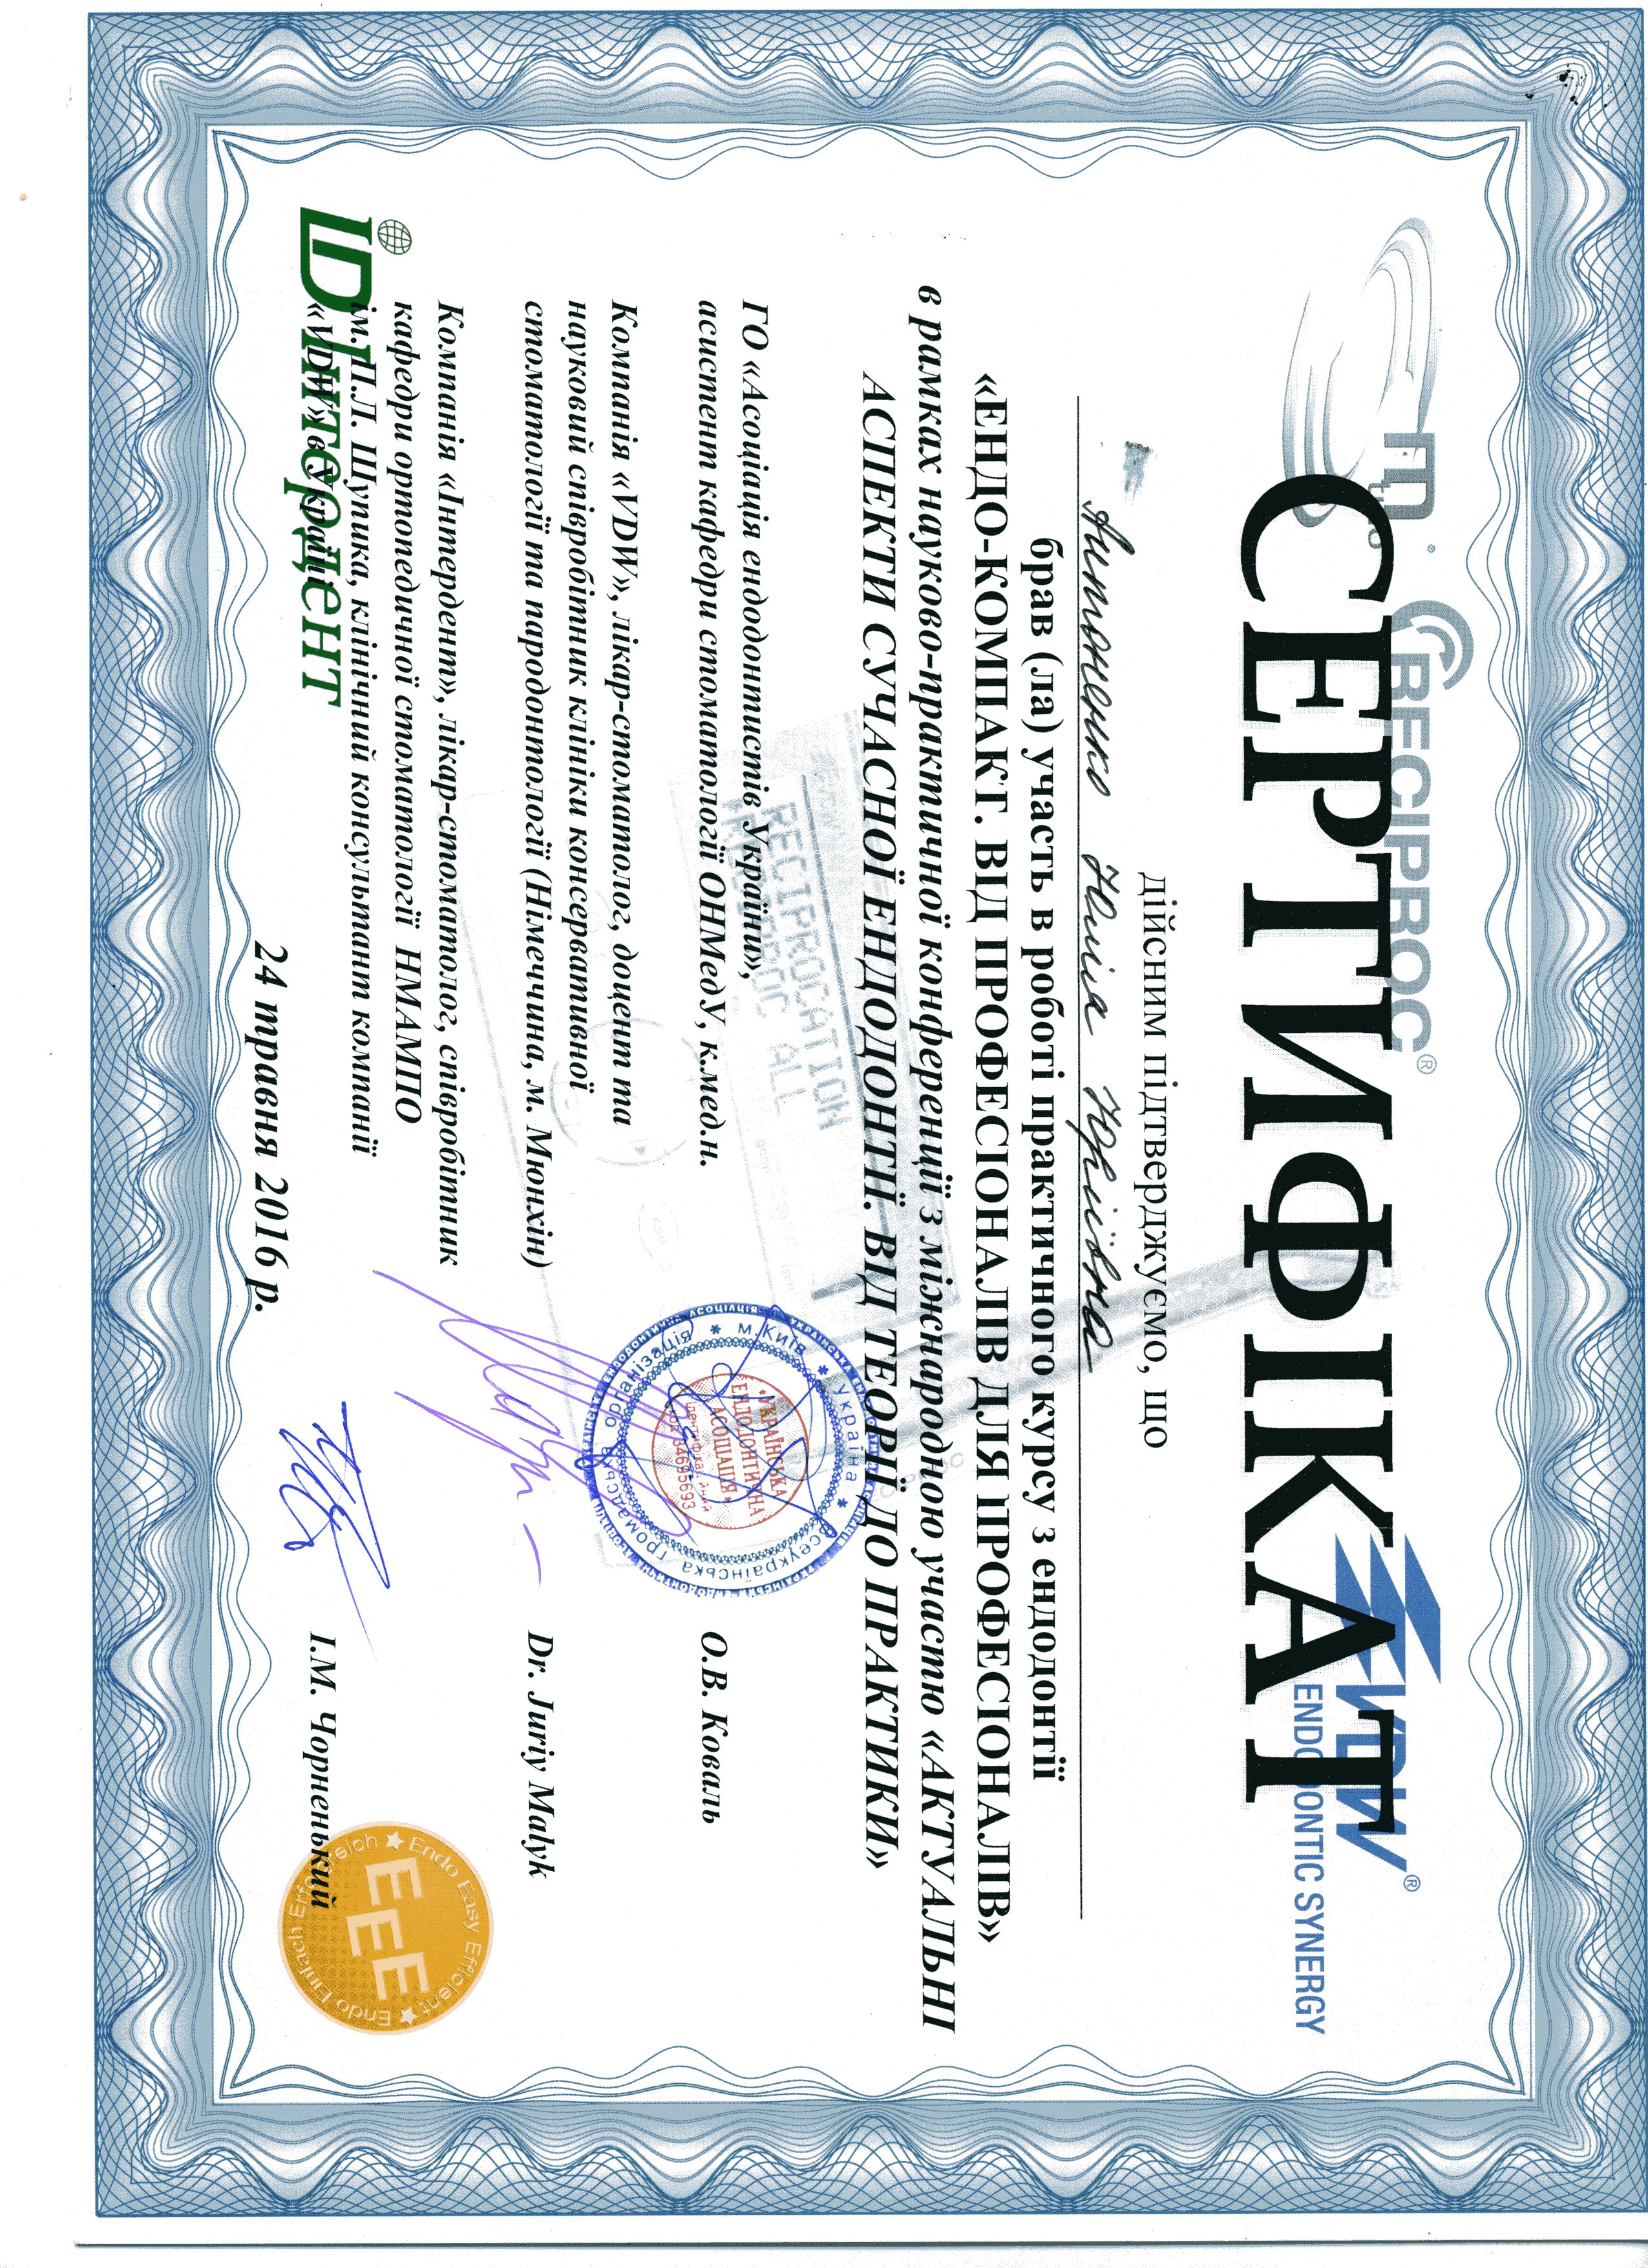 mtwo®
RECIPROC®
VDW®
ENDODONTIC SYNERGY
СЕРТИФІКАТ
дійсним підтверджуємо, що
Антоненко Юлія Юріївна
брав (ла) участь в роботі практичного курсу з ендодонтії
«ЕНДО-КОМПАКТ. ВІД ПРОФЕСІОНАЛІВ ДЛЯ ПРОФЕСІОНАЛІВ»
в рамках науково-практичної конференції з міжнародною участю «АКТУАЛЬНІ
АСПЕКТИ СУЧАСНОЇ ЕНДОДОНТІЇ. ВІД ТЕОРІЇ ДО ПРАКТИКИ»
VDW
RECIPROCATION
RECIPROC ALL
ГО «Асоціація ендодонтистів України»,
асистент кафедри стоматології ОНМедУ, к.мед.н.
О.В. Коваль
Україна * Всеукраїнська громадська організація * м.Київ *
«УКРАЇНСЬКА
ЕНДОДОНТИЧНА
АСОЦІАЦІЯ»
Ідентифікаційний
код 34695693
Компанія «VDW», лікар-стоматолог, доцент та
науковий співробітник клініки консервативної
стоматології та пародонтології (Німеччина, м. Мюнхін)
Dr. Juriy Malyk
Компанія «Інтердент», лікар-стоматолог, співробітник
кафедри ортопедичної стоматології НМАМПО
ім. П.Л. Шупика, клінічний консультант компанії
«VDW» в Україні
І.М. Чорненький
ID Інтердент
Endo Easy Efficient ★ Endo Einfach Erfolgreich ★
EEE
24 травня 2016 р.